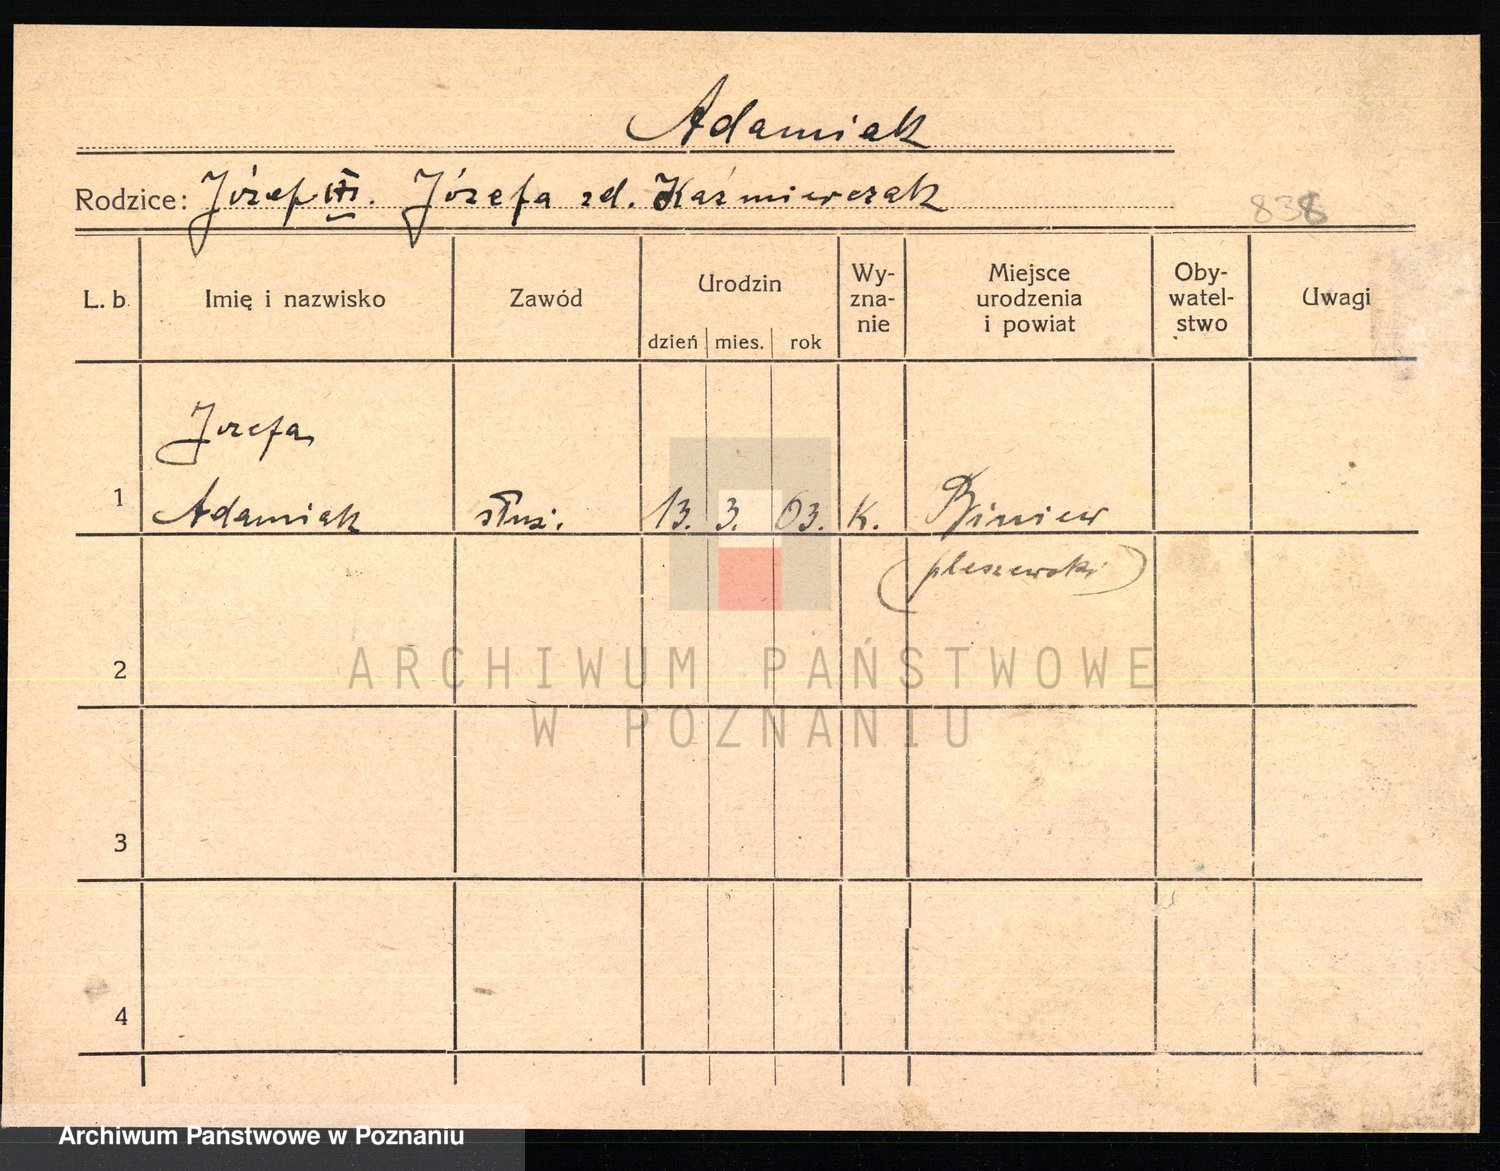 Adamiak
Rodzice: Józef i Józefa zd. Kaźmierczak
838
L. b. Imię i nazwisko Zawód Urodzin dzień mies. rok Wy-
zna-
nie Miejsce
urodzenia
i powiat Oby-
watel-
stwo Uwagi
Józefa
1 Adamiak służ. 13. 3. 03. K. Biniew
(pleszewski)
2
3
4
ARCHIWUM PAŃSTWOWE
W POZNANIU
Archiwum Państwowe w Poznaniu